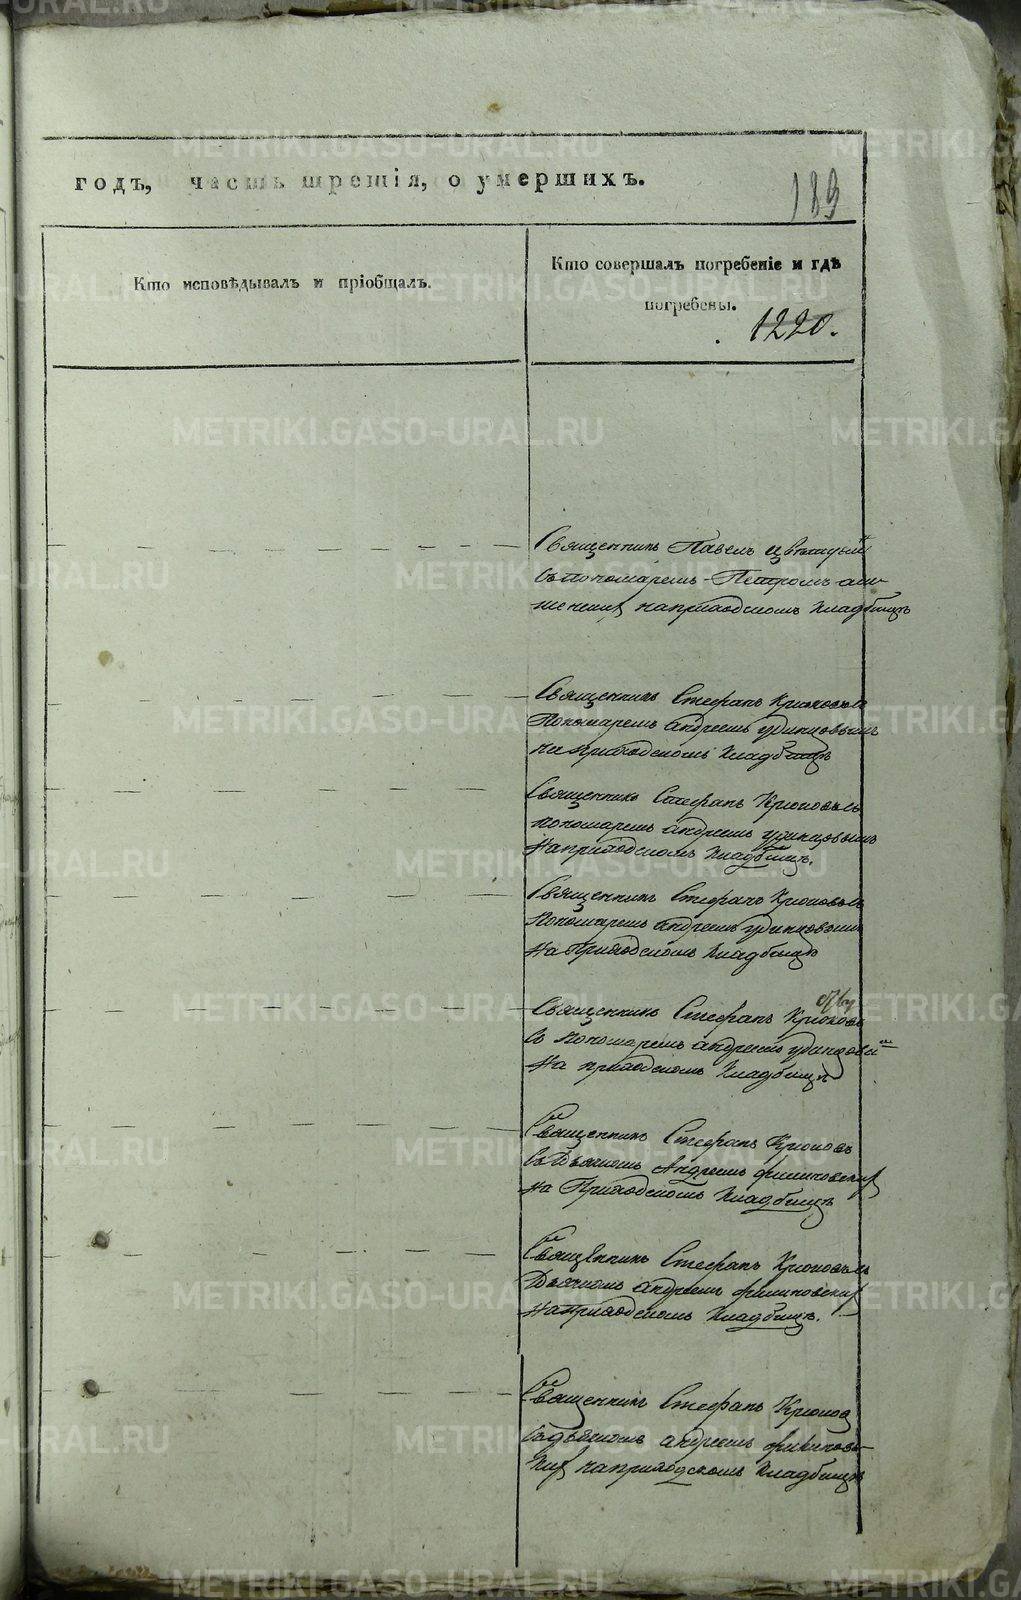 годъ, часть третія, о умершихъ.
189
Кто исповѣдывалъ и пріобщалъ.
Кто совершалъ погребеніе и гдѣ
погребены.
1220.
Священникъ Павелъ
съ пономаремъ Петромъ
на приходскомъ кладбищѣ
Священникъ Стефанъ Крюковъ съ
Пономаремъ андреемъ удинцовымъ
на приходскомъ кладбищѣ
Священникъ Стефанъ Крюковъ съ
пономаремъ андреемъ удинцовымъ
На приходскомъ кладбищѣ.
Священникъ Стефанъ Крюковъ съ
Пономаремъ андреемъ удинцовымъ
На Приходскомъ кладбищѣ
Священникъ Стефанъ Крюковъ
съ пономаремъ андреемъ удинцовымъ
На приходскомъ кладбищѣ
Священникъ Стефанъ Крюковъ
съ Дьячкомъ Андреемъ
На Приходскомъ кладбищѣ
Священникъ Стефанъ Крюковъ съ
Дьячкомъ андреемъ
На приходскомъ кладбищѣ.
Священникъ Стефанъ Крюков
съ дьячкомъ андреемъ
на приходскомъ кладбищѣ
METRIKI.GASO-URAL.RU